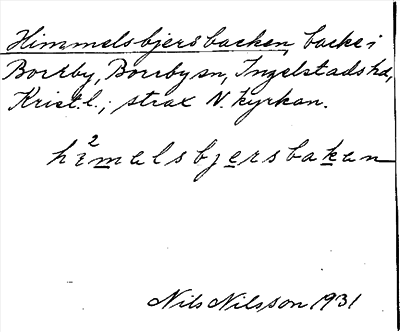 Himmelsbjersbacken, backe i
Borrby, Borrby sn, Ingelstads hd,
Krist.l.; strax N. kyrkan.
hi²melsbjersbaken
Nils Nilsson 1931